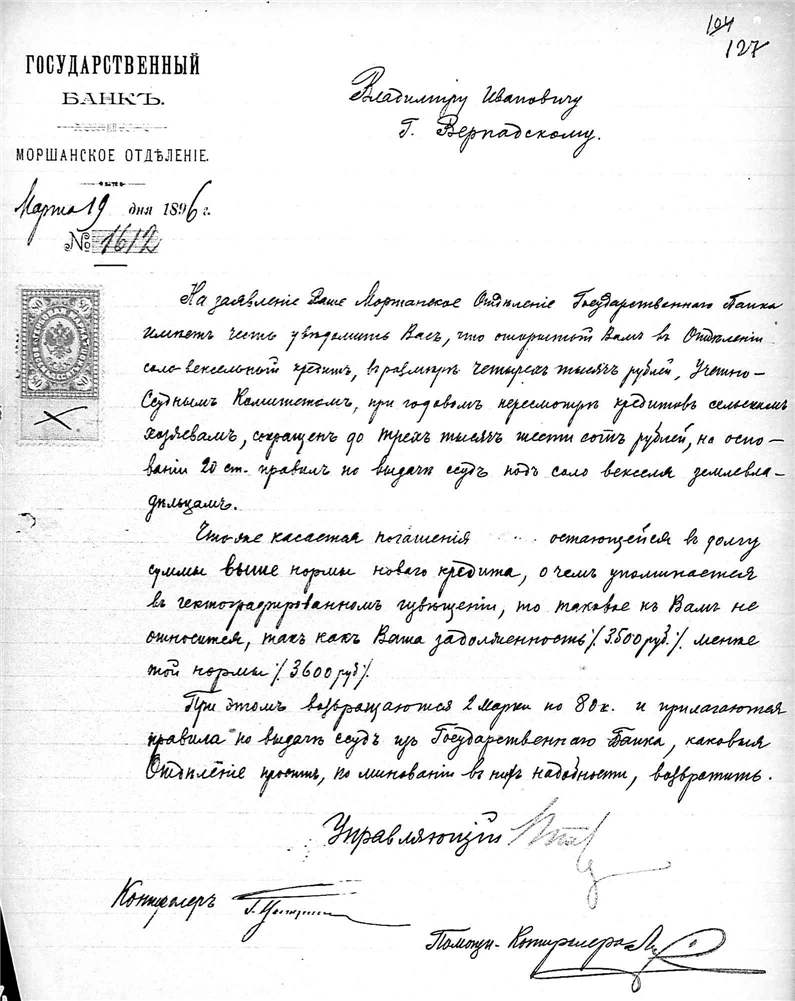 104
127
ГОСУДАРСТВЕННЫЙ
БАНКЪ.
МОРШАНСКОЕ ОТДѢЛЕНІЕ.
Марта 19 дня 1896 г.
№ 1612
Владиміру Ивановичу
Г. Вернадскому.
На заявленіе Ваше Моршанское Отдѣленіе Государственнаго Банка
имѣетъ честь увѣдомить Васъ, что открытый Вамъ въ Отдѣленіи
соло-вексельный кредитъ, въ размѣрѣ четырехъ тысячъ рублей, Учетно-
Ссуднымъ Комитетомъ, при годовомъ пересмотрѣ кредитовъ сельскимъ
хозяевамъ, сокращенъ до трехъ тысячъ шести сотъ рублей, на осно-
ваніи 20 ст. правилъ по выдачѣ ссудъ подъ соло векселя землевла-
дѣльцамъ.
Что же касается погашенія остающейся въ долгу
суммы выше нормы новаго кредита, о чемъ упоминается
въ гектографированномъ извѣщеніи, то таковое къ Вамъ не
относится, такъ какъ Ваша задолженность /. 3500 руб. /. менѣе
той нормы /. 3600 руб /.
При этомъ возвращаются 2 марки по 80 к. и прилагаются
правила по выдачѣ ссудъ изъ Государственнаго Банка, каковыя
Отдѣленіе проситъ, по минованіи въ нихъ надобности, возвратить.
Управляющій
Контролеръ
Помощн. Контролера
80 80
80 80